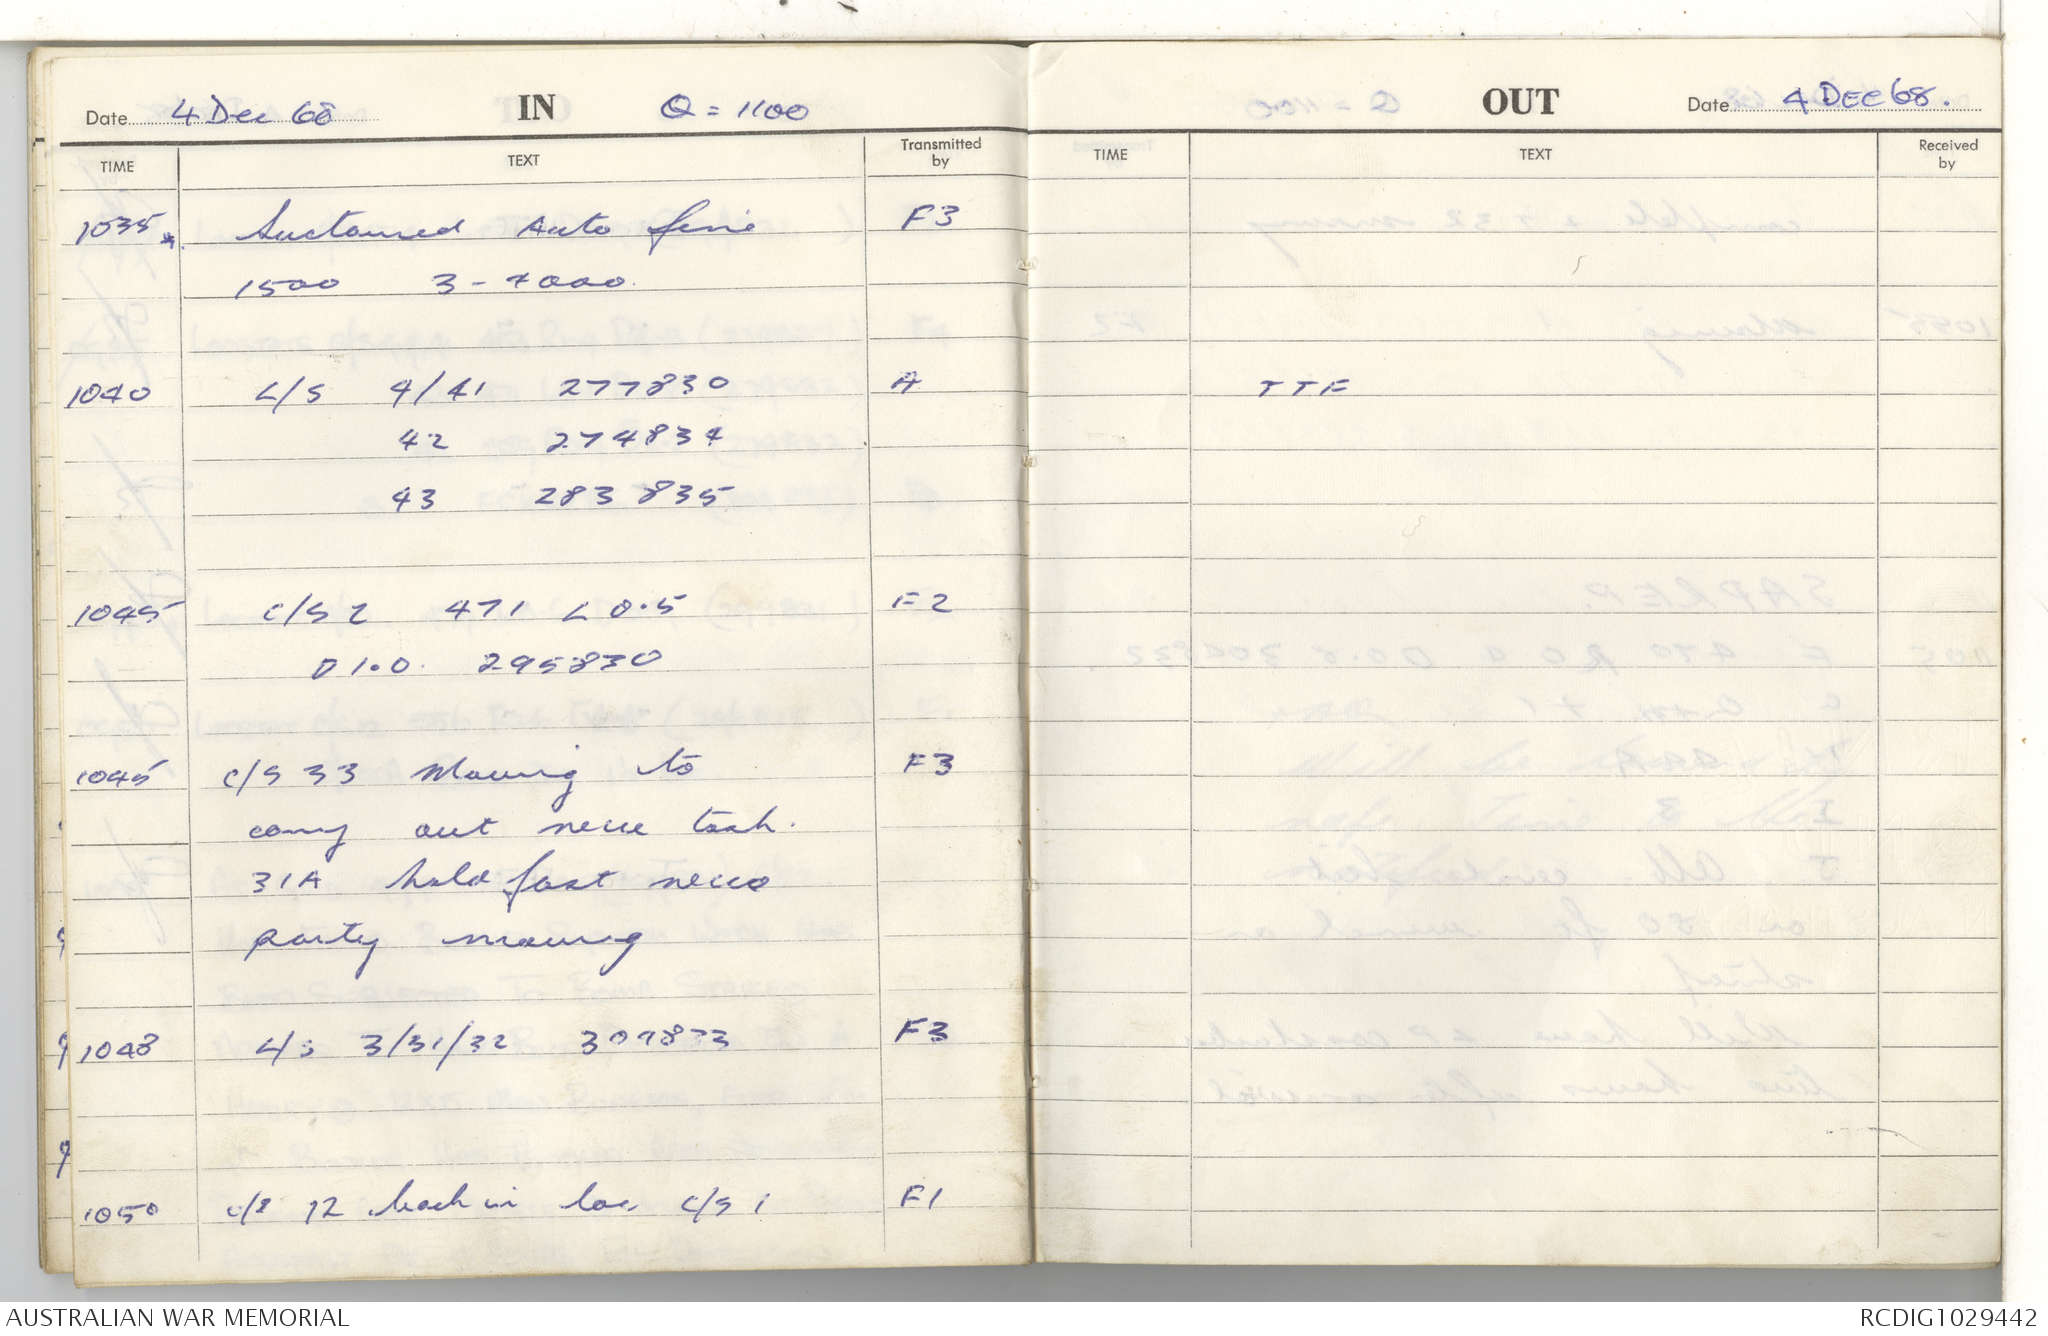 Date 4 Dec 68 IN Q = 1100
TIME TEXT Transmitted by
1035 *. Sustained Auto fire F3
1500 3-4000.
1040 L/S 4/41 277830 A
42 274834
43 283835
1045 C/S 2 471 L 0.5 F2
D 1.0. 295830
1045 C/S 33 Moving to F3
carry out recce task.
31A hold fast recce
party moving
1048 L/S 3/31/32 309833 F3
1050 c/s 12 back in loc C/S 1 F1
OUT Date 4 DEC 68.
TIME TEXT Received by
TTF
AUSTRALIAN WAR MEMORIAL RCDIG1029442